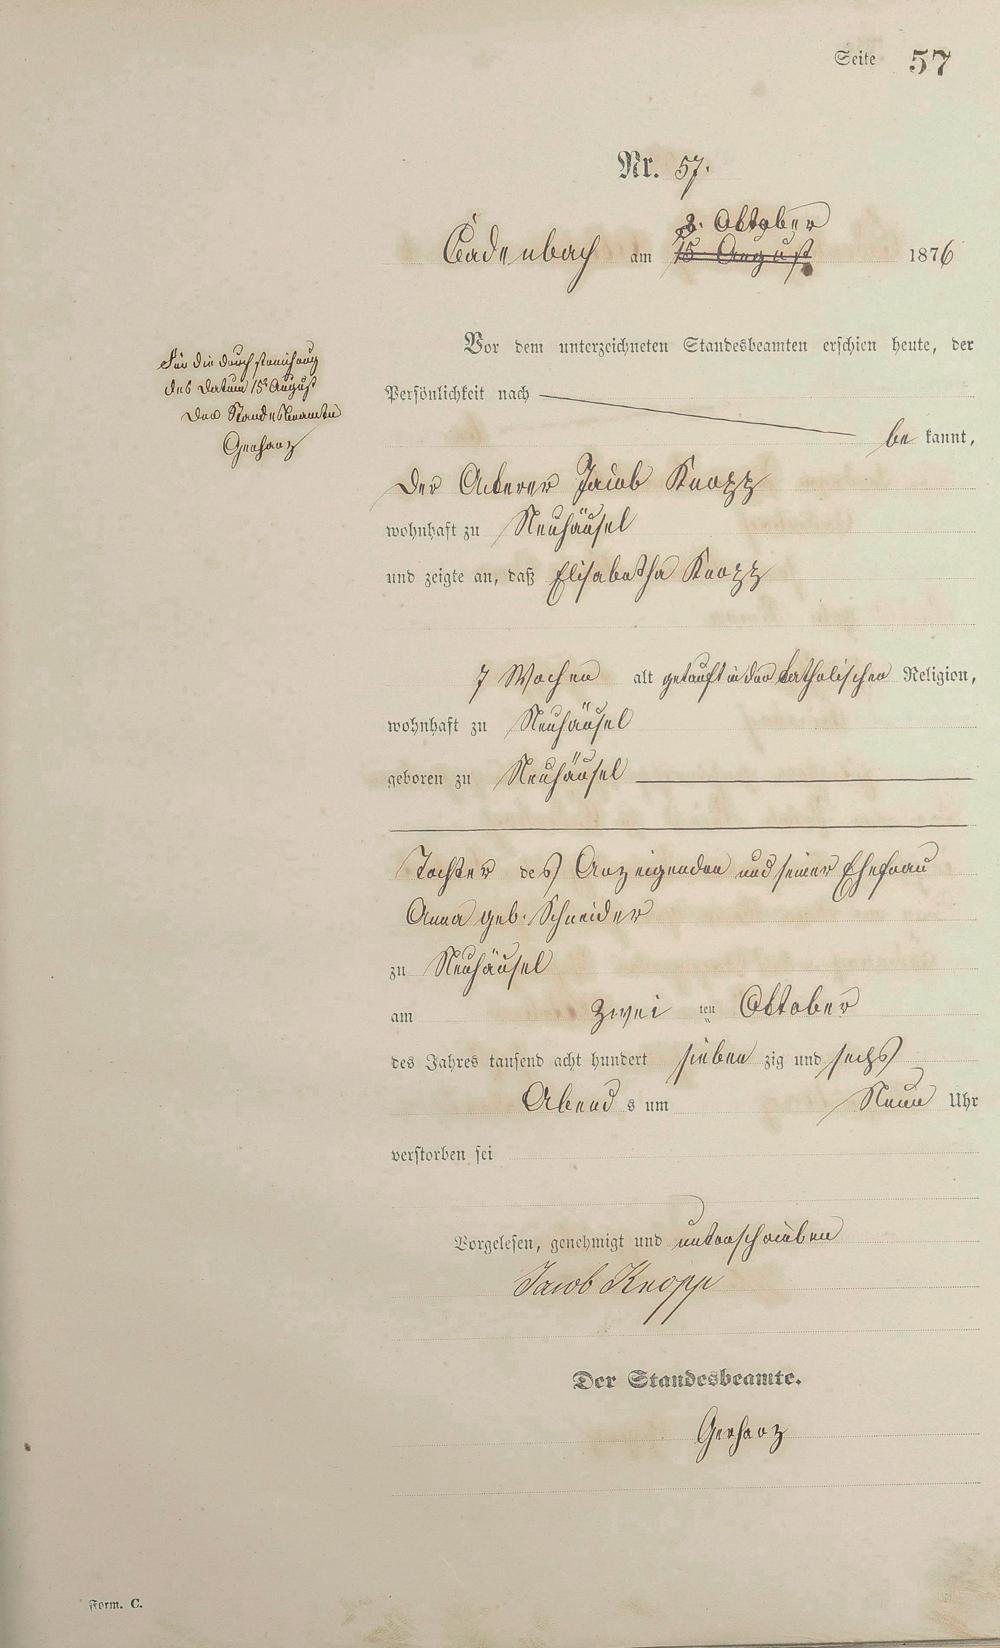 Seite 57
Nr. 57.
3. Oktober
Cadenbach am 15 August 1876
Vor dem unterzeichneten Standesbeamten erschien heute, der
Für die Durchstreichung
des Datum 15t August
Der Standesbeamte
Gerharz
Persönlichkeit nach
bekannt,
Der Ackerer Jacob Knopp
wohnhaft zu Neuhäusel
und zeigte an, daß Elisabetha Knopp
7 Wochen alt getauft in der katholischen Religion,
wohnhaft zu Neuhäusel
geboren zu Neuhäusel
Tochter des Anzeigenden und seiner Ehefrau
Anna geb. Schneider
zu Neuhäusel
am zwei ten Oktober
des Jahres tausend acht hundert sieben zig und sechs
Abend s um Neun Uhr
verstorben sei
Vorgelesen, genehmigt und unterschrieben
Jacob Knopp
Der Standesbeamte.
Gerharz
Form. C.